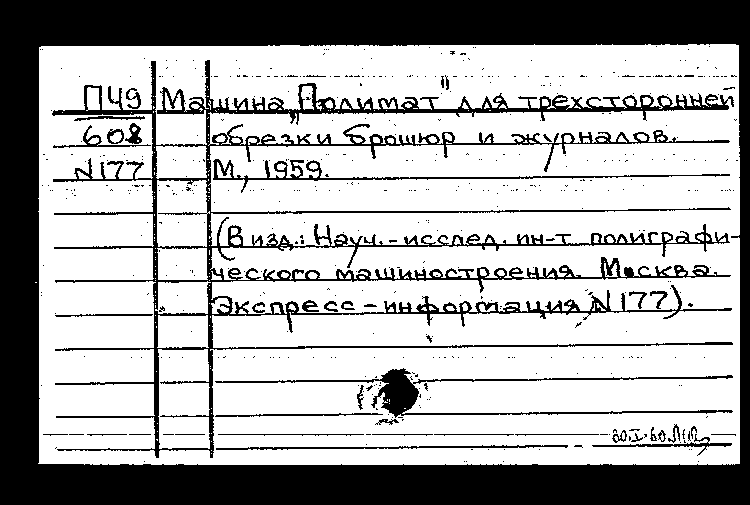 П49 Машина „Полимат" для трехсторонней
608 обрезки брошюр и журналов.
N177 М., 1959.
(В изд.: Науч.-исслед. ин-т полиграфи-
ческого машиностроения. Москва.
Экспресс-информация, N177).